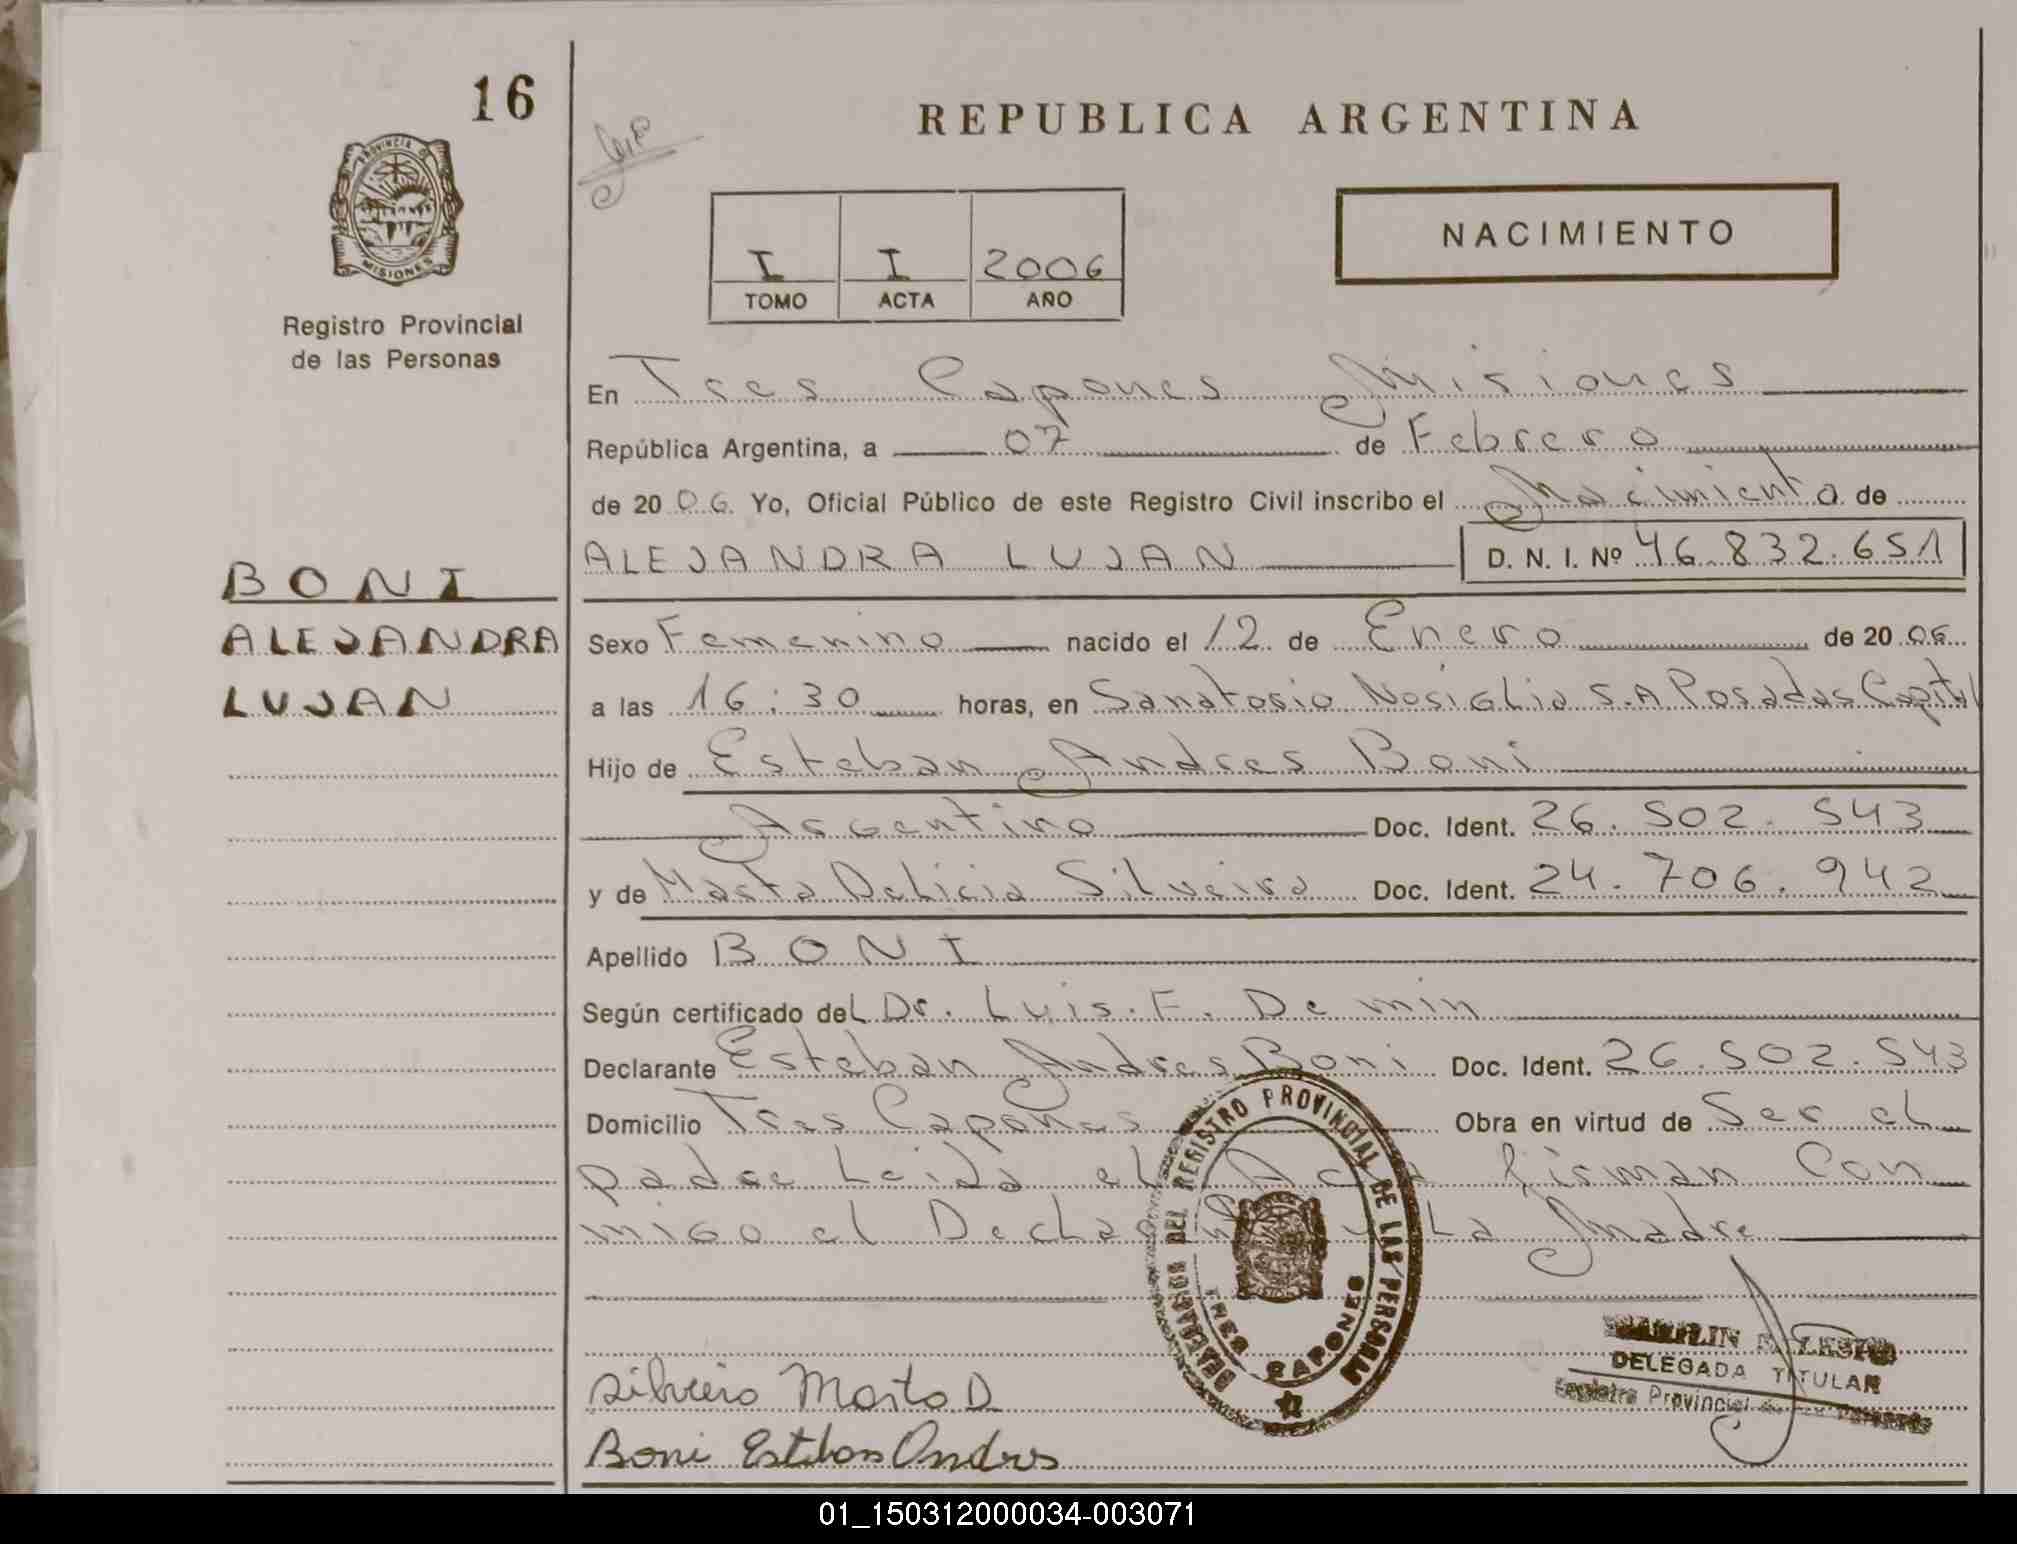 16
PROVINCIA DE
MISIONES
Registro Provincial
de las Personas
BONI
ALEJANDRA
LUJAN
REPUBLICA ARGENTINA
I I 2006
TOMO ACTA AÑO
NACIMIENTO
En Tres Capones Misiones
República Argentina, a 07 de Febrero
de 2006. Yo, Oficial Público de este Registro Civil inscribo el Nacimiento de
ALEJANDRA LUJAN D. N. I. Nº 46.832.651
Sexo Femenino nacido el 12 de Enero de 2006
a las 16:30 horas, en Sanatorio Nosiglia S.A Posadas Capital
Hijo de Esteban Andres Boni
Argentino Doc. Ident. 26.502.543
y de Marta Delicia Silveira Doc. Ident. 24.706.942
Apellido BONI
Según certificado del Dr. Luis. F. De min
Declarante Esteban Andres Boni Doc. Ident. 26.502.543
Domicilio Tres Capones Obra en virtud de Ser el
padre Leida el Acta firman Con
migo el Declarante y La Madre
DEL REGISTRO PROVINCIAL DE LAS PERSONAS
TRES CAPONES
DELEGADA TITULAR
Registro Provincial de las Personas
Silveira Marta D
Boni Esteban Andres
01_150312000034-003071